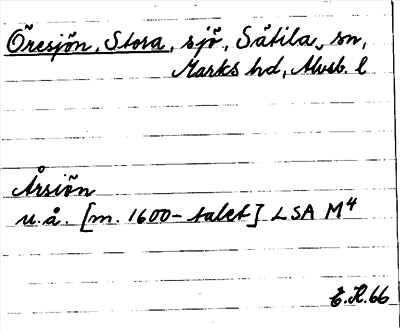 Öresjön, Stora, sjö, Sätila sn,
Marks hd, Älvsb. l
Årsiön
u.å. [m. 1600-talet] LSA M4
E.H. 66